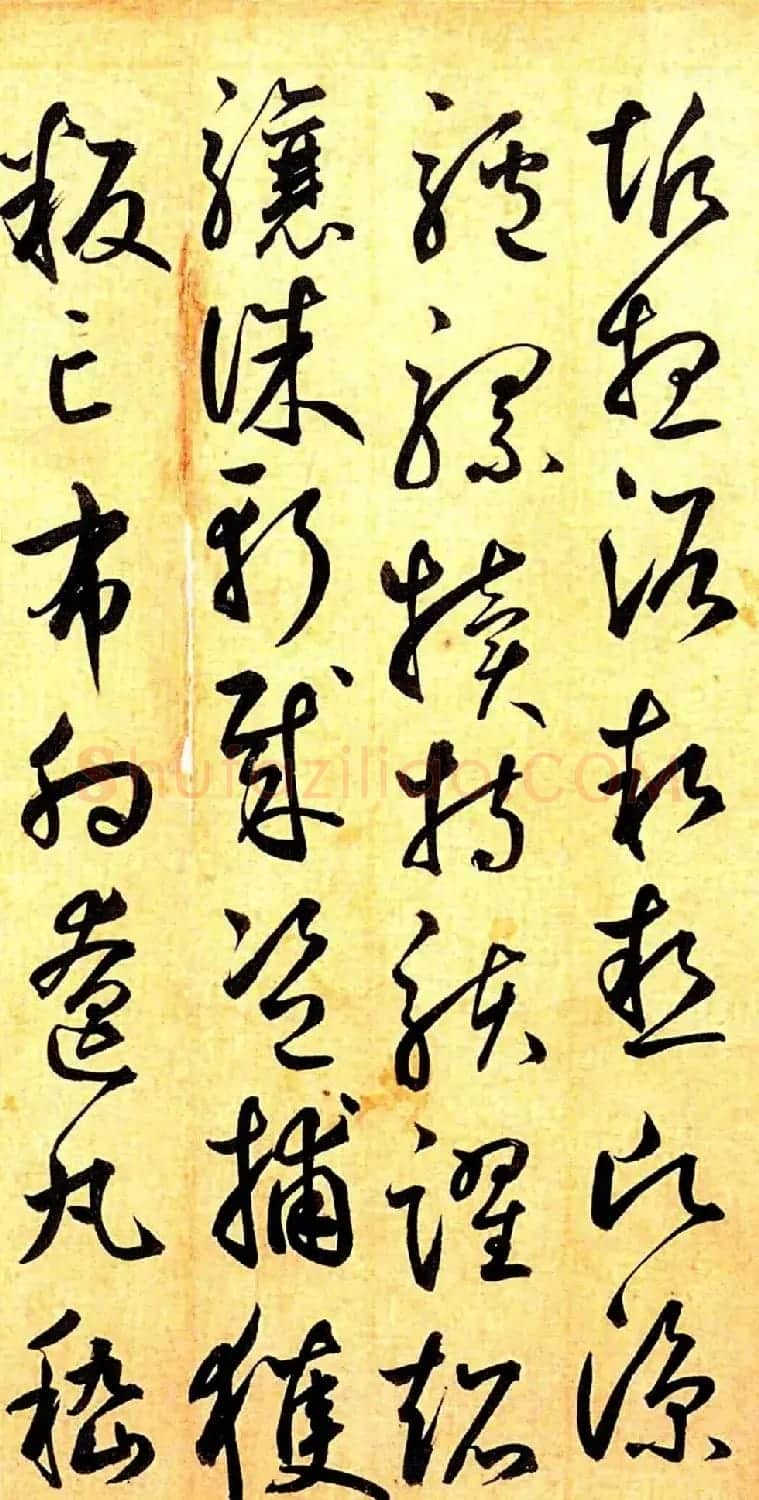 垢想浴執熱願涼
驢騾犢特駭躍超
驤誅斬賊盜捕獲
叛亡布射遼丸嵇
Shufaziliao.COM